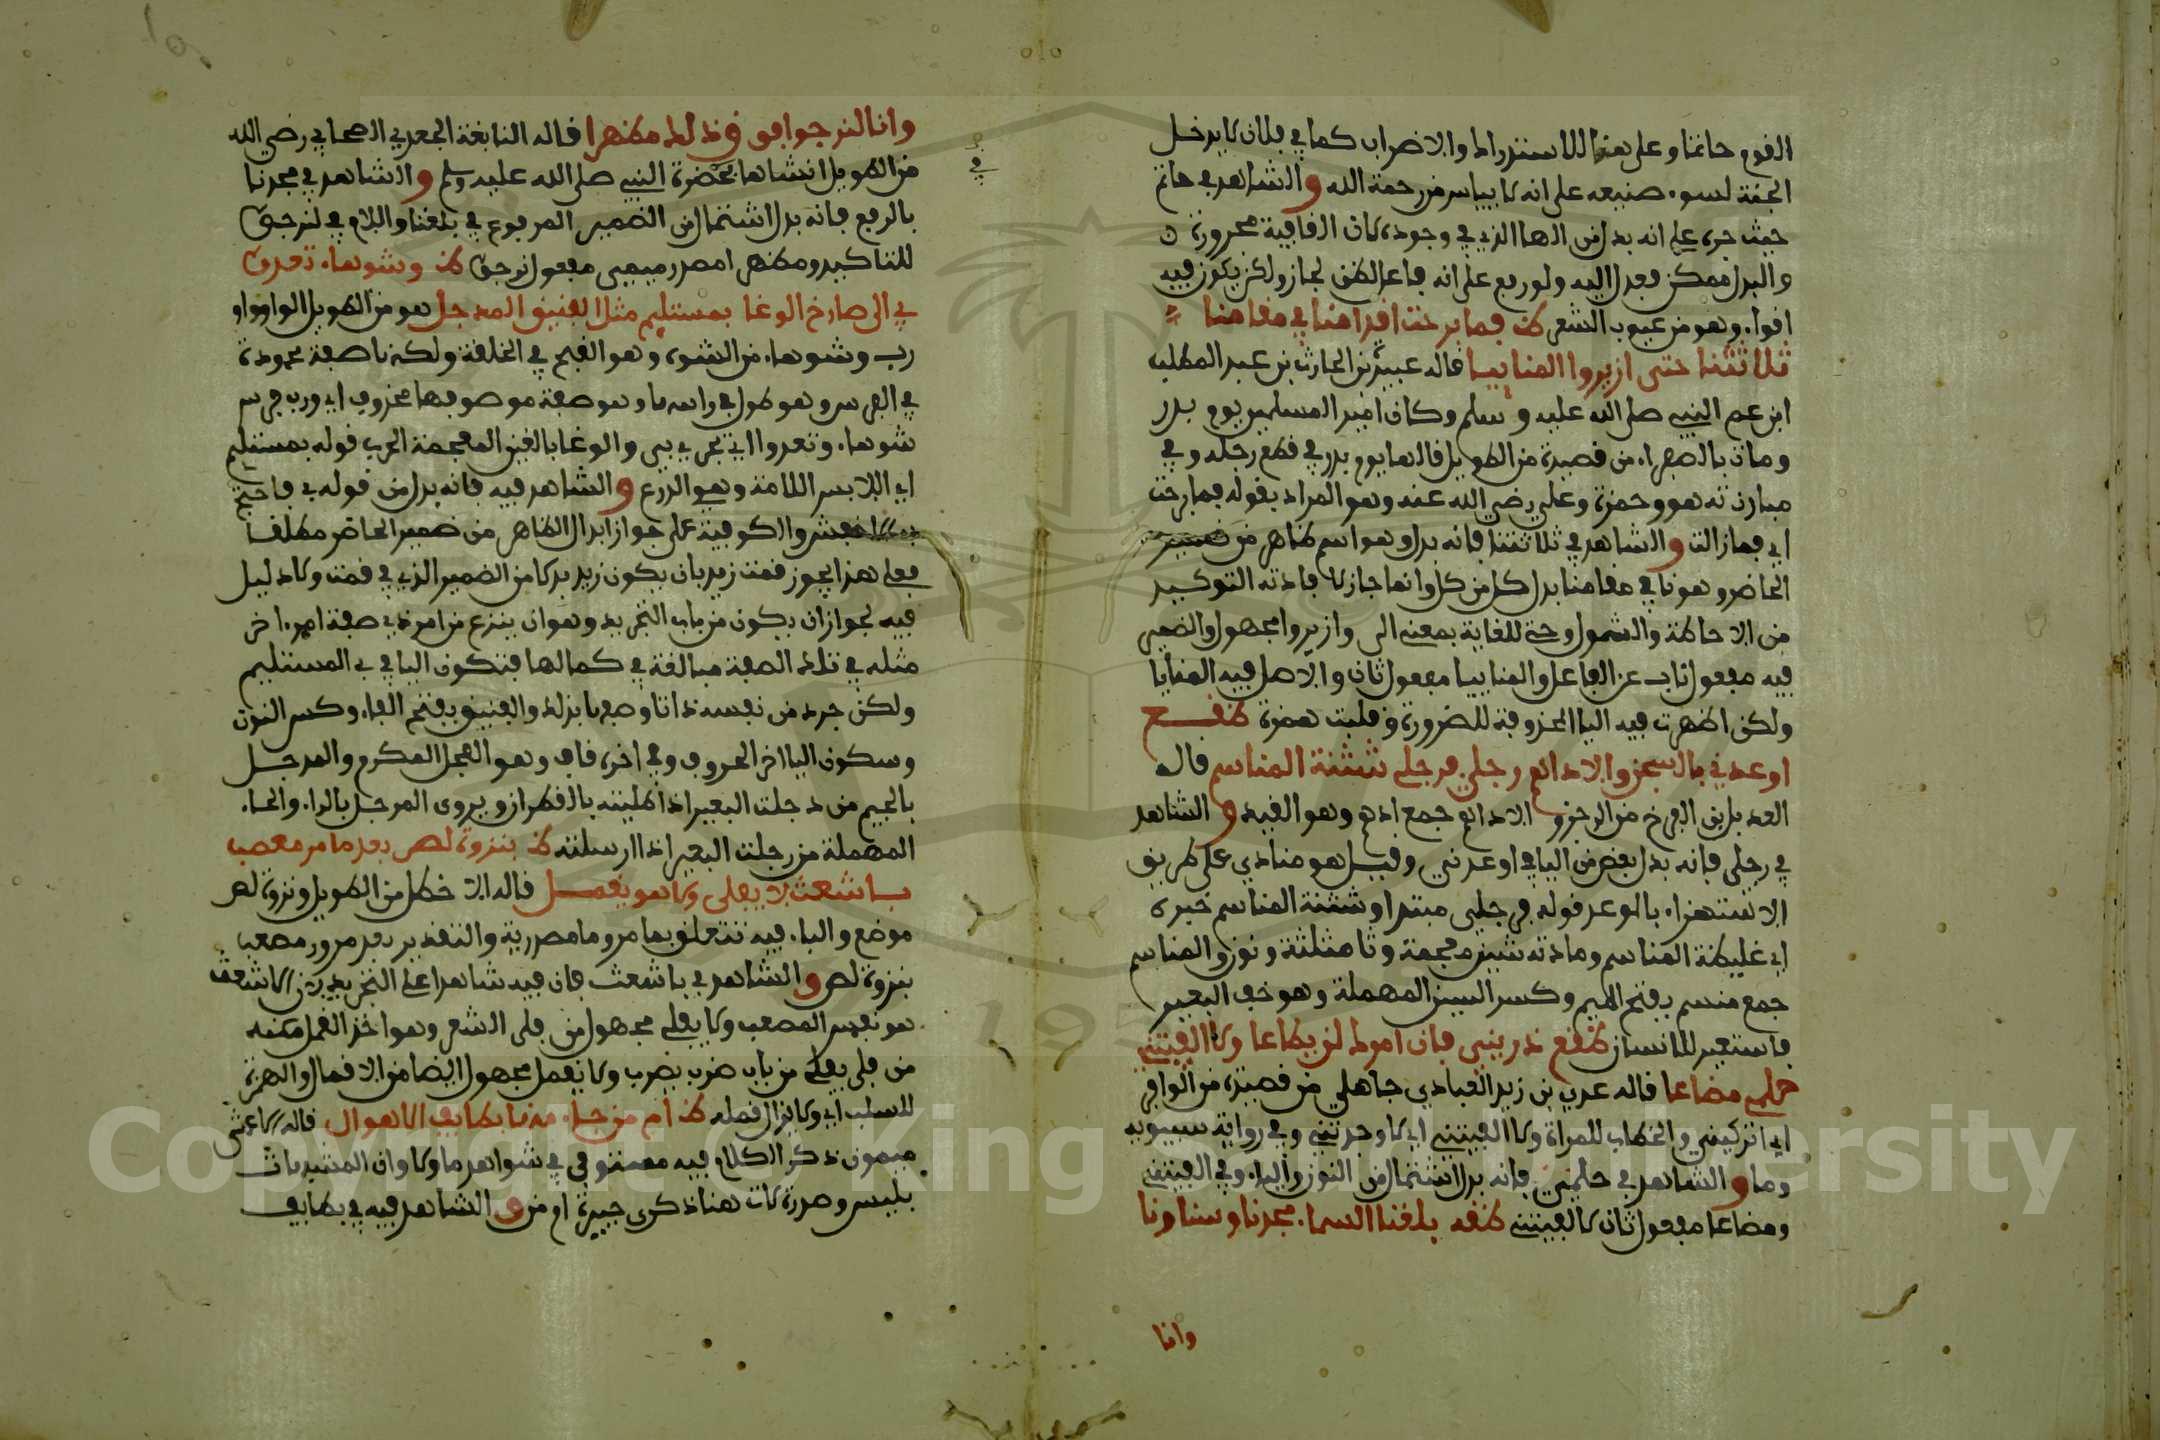 القوم حاتما وعلى هنا للاستدراك والاضراب كما في فلان لا يدخل
الجنة لسوء صنيعه على انه لا ييأس من رحمة الله والشاهد في حاتم
حيث جره على انه بدل من الها الذي في وجوده لان القافية مجرورة
والبدل ممكن فعدل اليه ولو رفع على انه فاعل لظن لجاز ولكن يكون فيه
اقواء وهو من عيوب الشعر فما برحت اقدامنا في مقامنا
ثلاثتنا حتى ازيروا المنائيا قاله عبيدة بن الحارث بن عبد المطلب
ابن عم النبي صلى الله عليه وسلم وكان امير المسلمين يوم بدر
ومات بالصفراء من قصيدة من الطويل قالها يوم بدر في قطع رجله وفي
مبارزته هو وحمزة وعلي رضي الله عنه وهو المراد بقوله فما برحت
اي فما زالت والشاهد في ثلاثتنا فانه بدل وهو اسم ظاهر من ضمير
الحاضر وهو نا في مقامنا بدل كل من كل وانما جاز لافادته التوكيد
من الاحاطة والشمول وحتى للغاية بمعنى الى وازيروا مجهول والضمير
فيه مفعول ناب عن الفاعل والمنائيا مفعول ثان والاصل فيه المنايا
ولكن اظهرت فيه اليا المحذوفة للضرورة وقلبت همزة ظقهع
اوعدني بالسجن والاداهم رجلي فرجلي شثنة المناسم قاله
العديل بن الفرخ من الرجز والاداهم جمع ادهم وهو القيد والشاهد
في رجلي فانه بدل بعض من اليا في اوعدني وقيل هو منادي على طريق
الاستهزاء بالوعد قوله فرجلي مبتدا وشثنة المناسم خبره
اي غليظة المناسم ومادته شين معجمة وثا مثلثة ونون والمناسم
جمع منسم بفتح الميم وكسر السين المهملة وهو خف البعير
فاستعير للانسان ظقهع ذريني فان امرك لن يطاعا وما الفيتني
حلمي مضاعا قاله عدي بن زيد العبادي جاهلي من قصيدة من الوافر
اي اتركيني والخطاب للمراة وما الفيتني اي ما وجدتني وفي رواية سيبويه
وما والشاهد في حلمي فانه بدل اشتمال من النون واليا وفي الفيتني
ومضاعا مفعول ثان لالفيتني ظقه بلغنا السماء مجدنا وسناؤنا
وانا
وانا لنرجوا فوق ذلك مظهرا قاله النابغة الجعدي الصحابي رضي الله
من الطويل انشدها بحضرة النبي صلى الله عليه وسلم والشاهد في مجدنا
بالرفع فانه بدل اشتمال من الضمير المرفوع في بلغنا واللام في لنرجوا
للتاكيد ومظهرا مصدر ميمي مفعول نرجوا ظ وشوهاء تعدوا
بي الى صارخ الوغا بمستلئم مثل الفنيق المدجل هو من الطويل الواو واو
رب وشوهاء من الشوه وهو القبح في الخلقة ولكنها صفة محمودة
في الفرس وهو طول في راسها وهو صفة موصوفها محذوف اي ورب فرس
شوهاء وتعدوا اي تجري بي والوغا بالغين المعجمة الحرب قوله بمستلئم
اي اللابس اللامة وهو الدرع والشاهد فيه فانه بدل من قوله بي فاحتج
به الاخفش والكوفية على جواز ابدال الظاهر من ضمير الحاضر مطلقا
فعلى هذا يجوز قمت زيد بان يكون زيد بدلا من الضمير الذي في قمت ولا دليل
فيه لجواز ان يكون من باب التجريد وهو ان ينزع من امر ذي صفة امرا اخر
مثله في تلك الصفة مبالغة في كمالها فتكون البا في بالمستلئم
ولكن جرد من نفسه ذاتا وصفها بذلك والفنيق بفتح الفاء وكسر النون
وسكون اليا اخر الحروف وفي اخره قاف وهو الفحل المكرم والمدجل
بالجيم من دجلت البعير اذا طليته بالقطران ويروى المرحل بالراء والحاء
المهملة من رحلت البعير اذا ارسلته ظ بنزوة لص بعد ما مر مصعب
باشعث لا يفلى ولا هو يقمل قاله الاخطل من الطويل ونزوة لص
موضع والباء فيه تتعلق بما مر وما مصدرية والتقدير بعد مرور مصعب
بنزوة لص والشاهد في باشعث فان فيه شاهدا على التجريد لان الاشعث
هو نفس المصعب ولا يفلى مجهول من فلى الشعر وهو اخذ القمل منه
من فلى يفلي من باب ضرب يضرب ولا يقمل مجهول ايضا من الاقمال والهمزة
للسلب اي ولا يزال قمله ظ ام من جاء منها بطايف الاهوال قاله الاعشى
ميمون ذكر الكلام فيه مستوفى في شواهد ما ولا وان المشبهات
بليس وصدره لات هنا ذكرى جبيرة ام من والشاهد فيه في بطايف